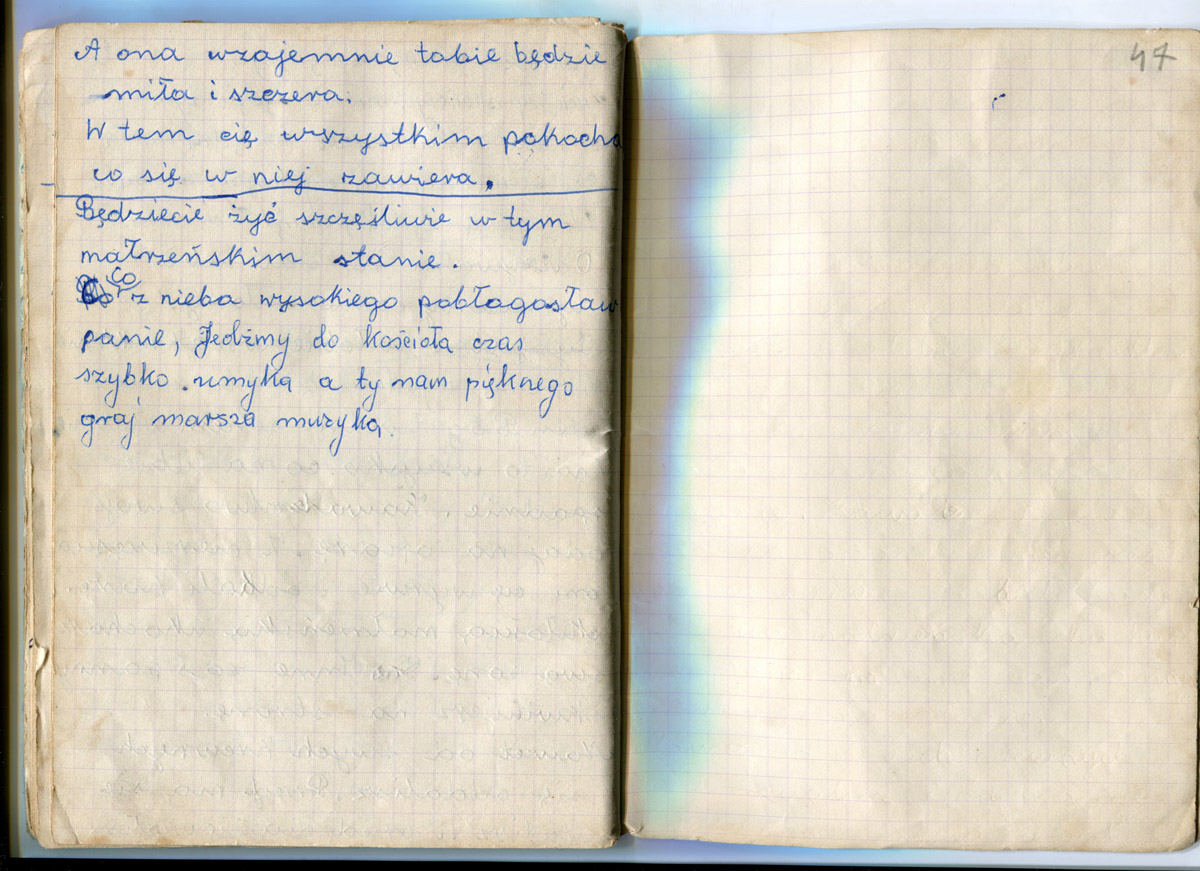 A ona wzajemnie tobie będzie
miła i szczera.
W tem cię wszystkim pokocha
co się w niej zawiera.
Będziecie żyć szczęśliwie w tym
małrzeńskim stanie.
Co z nieba wysokiego pobłogosław
panie, Jedźmy do kościoła czas
szybko umyka a ty nam pięknego
graj marsza muzyka.
47